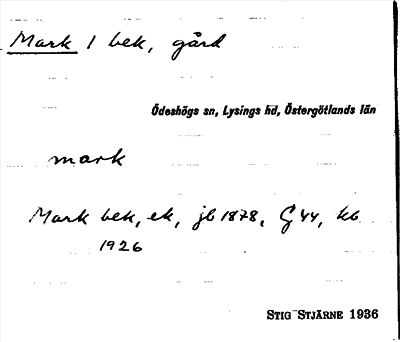 Mark 1 bek, gård
Ödeshögs sn, Lysings hd, Östergötlands län
mark
Mark bek, ek, jb 1878, G 44, kb
1926
Stig Stjärne 1936